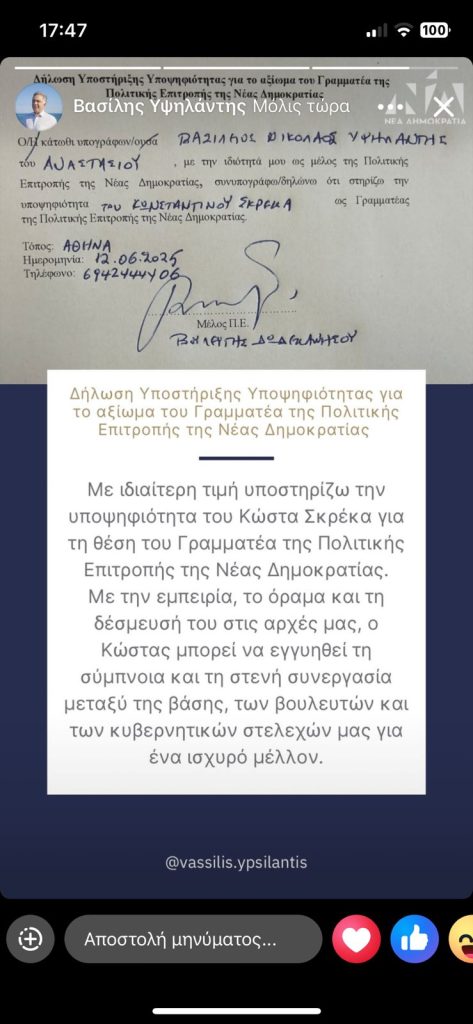 17:47
100
Δήλωση Υποστήριξης Υποψηφιότητας για το αξίωμα του Γραμματέα της
Πολιτικής Επιτροπής της Νέας Δημοκρατίας
Βασίλης Υψηλάντης Μόλις τώρα
ΝΕΑ ΔΗΜΟΚΡΑΤΙΑ
Ο/Η κάτωθι υπογράφων/ουσα ΒΑΣΙΛΕΙΟΣ ΝΙΚΟΛΑΟΣ ΥΨΗΛΑΝΤΗΣ
του ΑΝΑΣΤΑΣΙΟΥ, με την ιδιότητά μου ως μέλος της Πολιτικής
Επιτροπής της Νέας Δημοκρατίας, συνυπογράφω/δηλώνω ότι στηρίζω την
υποψηφιότητα του ΚΩΝΣΤΑΝΤΙΝΟΥ ΣΚΡΕΚΑ ως Γραμματέας
της Πολιτικής Επιτροπής της Νέας Δημοκρατίας.
Τόπος: ΑΘΗΝΑ
Ημερομηνία: 12.06.2025
Τηλέφωνο: 6942444406
Μέλος Π.Ε.
ΒΟΥΛΕΥΤΗΣ ΔΩΔΕΚΑΝΗΣΟΥ
Δήλωση Υποστήριξης Υποψηφιότητας για
το αξίωμα του Γραμματέα της Πολιτικής
Επιτροπής της Νέας Δημοκρατίας
Με ιδιαίτερη τιμή υποστηρίζω την
υποψηφιότητα του Κώστα Σκρέκα για
τη θέση του Γραμματέα της Πολιτικής
Επιτροπής της Νέας Δημοκρατίας.
Με την εμπειρία, το όραμα και τη
δέσμευσή του στις αρχές μας, ο
Κώστας μπορεί να εγγυηθεί τη
σύμπνοια και τη στενή συνεργασία
μεταξύ της βάσης, των βουλευτών και
των κυβερνητικών στελεχών μας για
ένα ισχυρό μέλλον.
@vassilis.ypsilantis
Αποστολή μηνύματος...